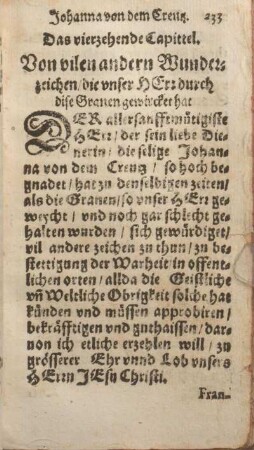 Johanna von dem Creutz. 233
Das vierzehende Capittel.
Von vilen andern Wunder-
zeichen/die vnser HErr durch
dise Granen gewircket hat
DER allersanfftmütigiste
HErr/ der sein liebe Die-
nerin/die selige Johan-
na von dem Creutz / so hoch be-
gnadet/hat zu denselbigen zeiten/
als die Granen/so vnser HErr ge-
weycht / vnd noch gar schlecht ge-
halten wurden / sich gewürdiget/
vil andere zeichen zu thun/zu be-
stettigung der Warheit/in offent-
lichen orten / allda die Geistliche
vñ Weltliche Obrigkeit solche hat
künden vnd müssen approbiren/
bekräfftigen vnd guthaissen/dar-
von ich etliche erzehlen will / zu
grösserer Ehr vnnd Lob vnsers
HErrn JEsu Christi.
Fran-